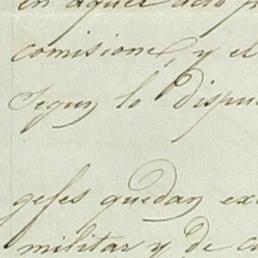 en aquel acto
comisiones, y el
Segun lo dispu
gefes quedan ex
militar y de